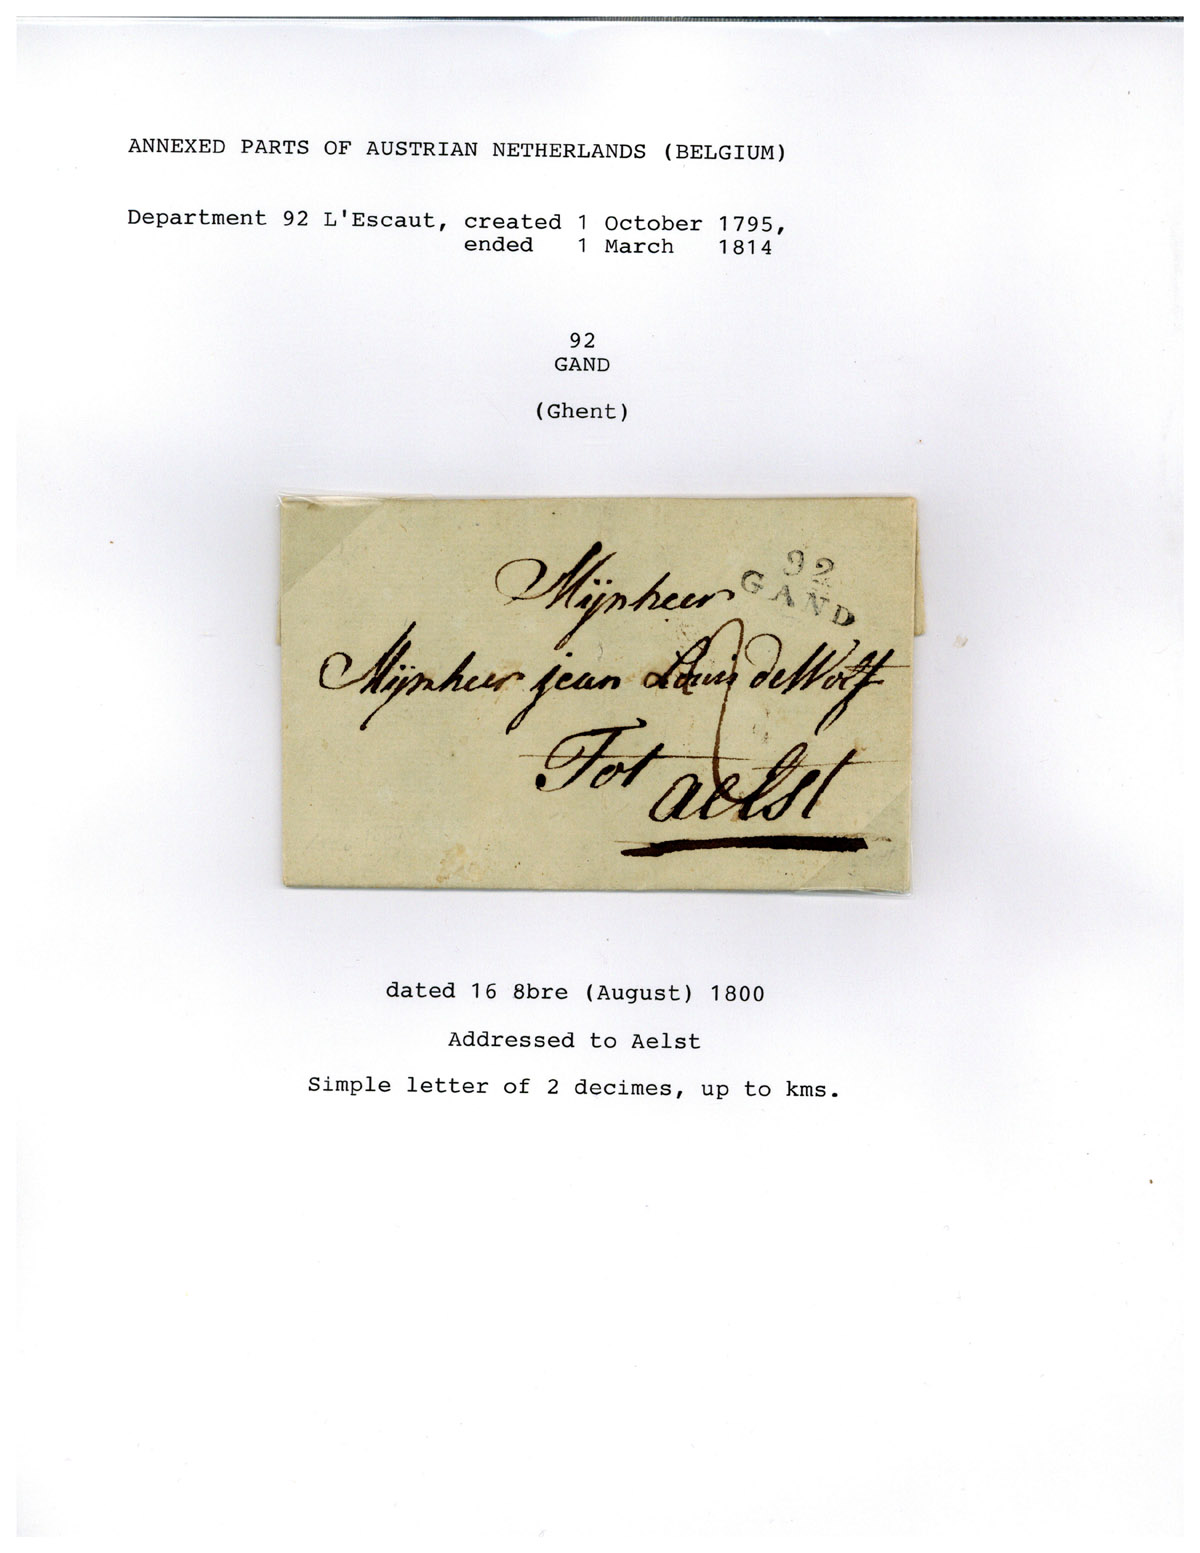 ANNEXED PARTS OF AUSTRIAN NETHERLANDS (BELGIUM)
Department 92 L'Escaut, created 1 October 1795,
ended 1 March 1814
92
GAND
(Ghent)
92
GAND
Mijnheer
Mijnheer jean Louis de Wolf
Tot aelst
dated 16 8bre (August) 1800
Addressed to Aelst
Simple letter of 2 decimes, up to kms.